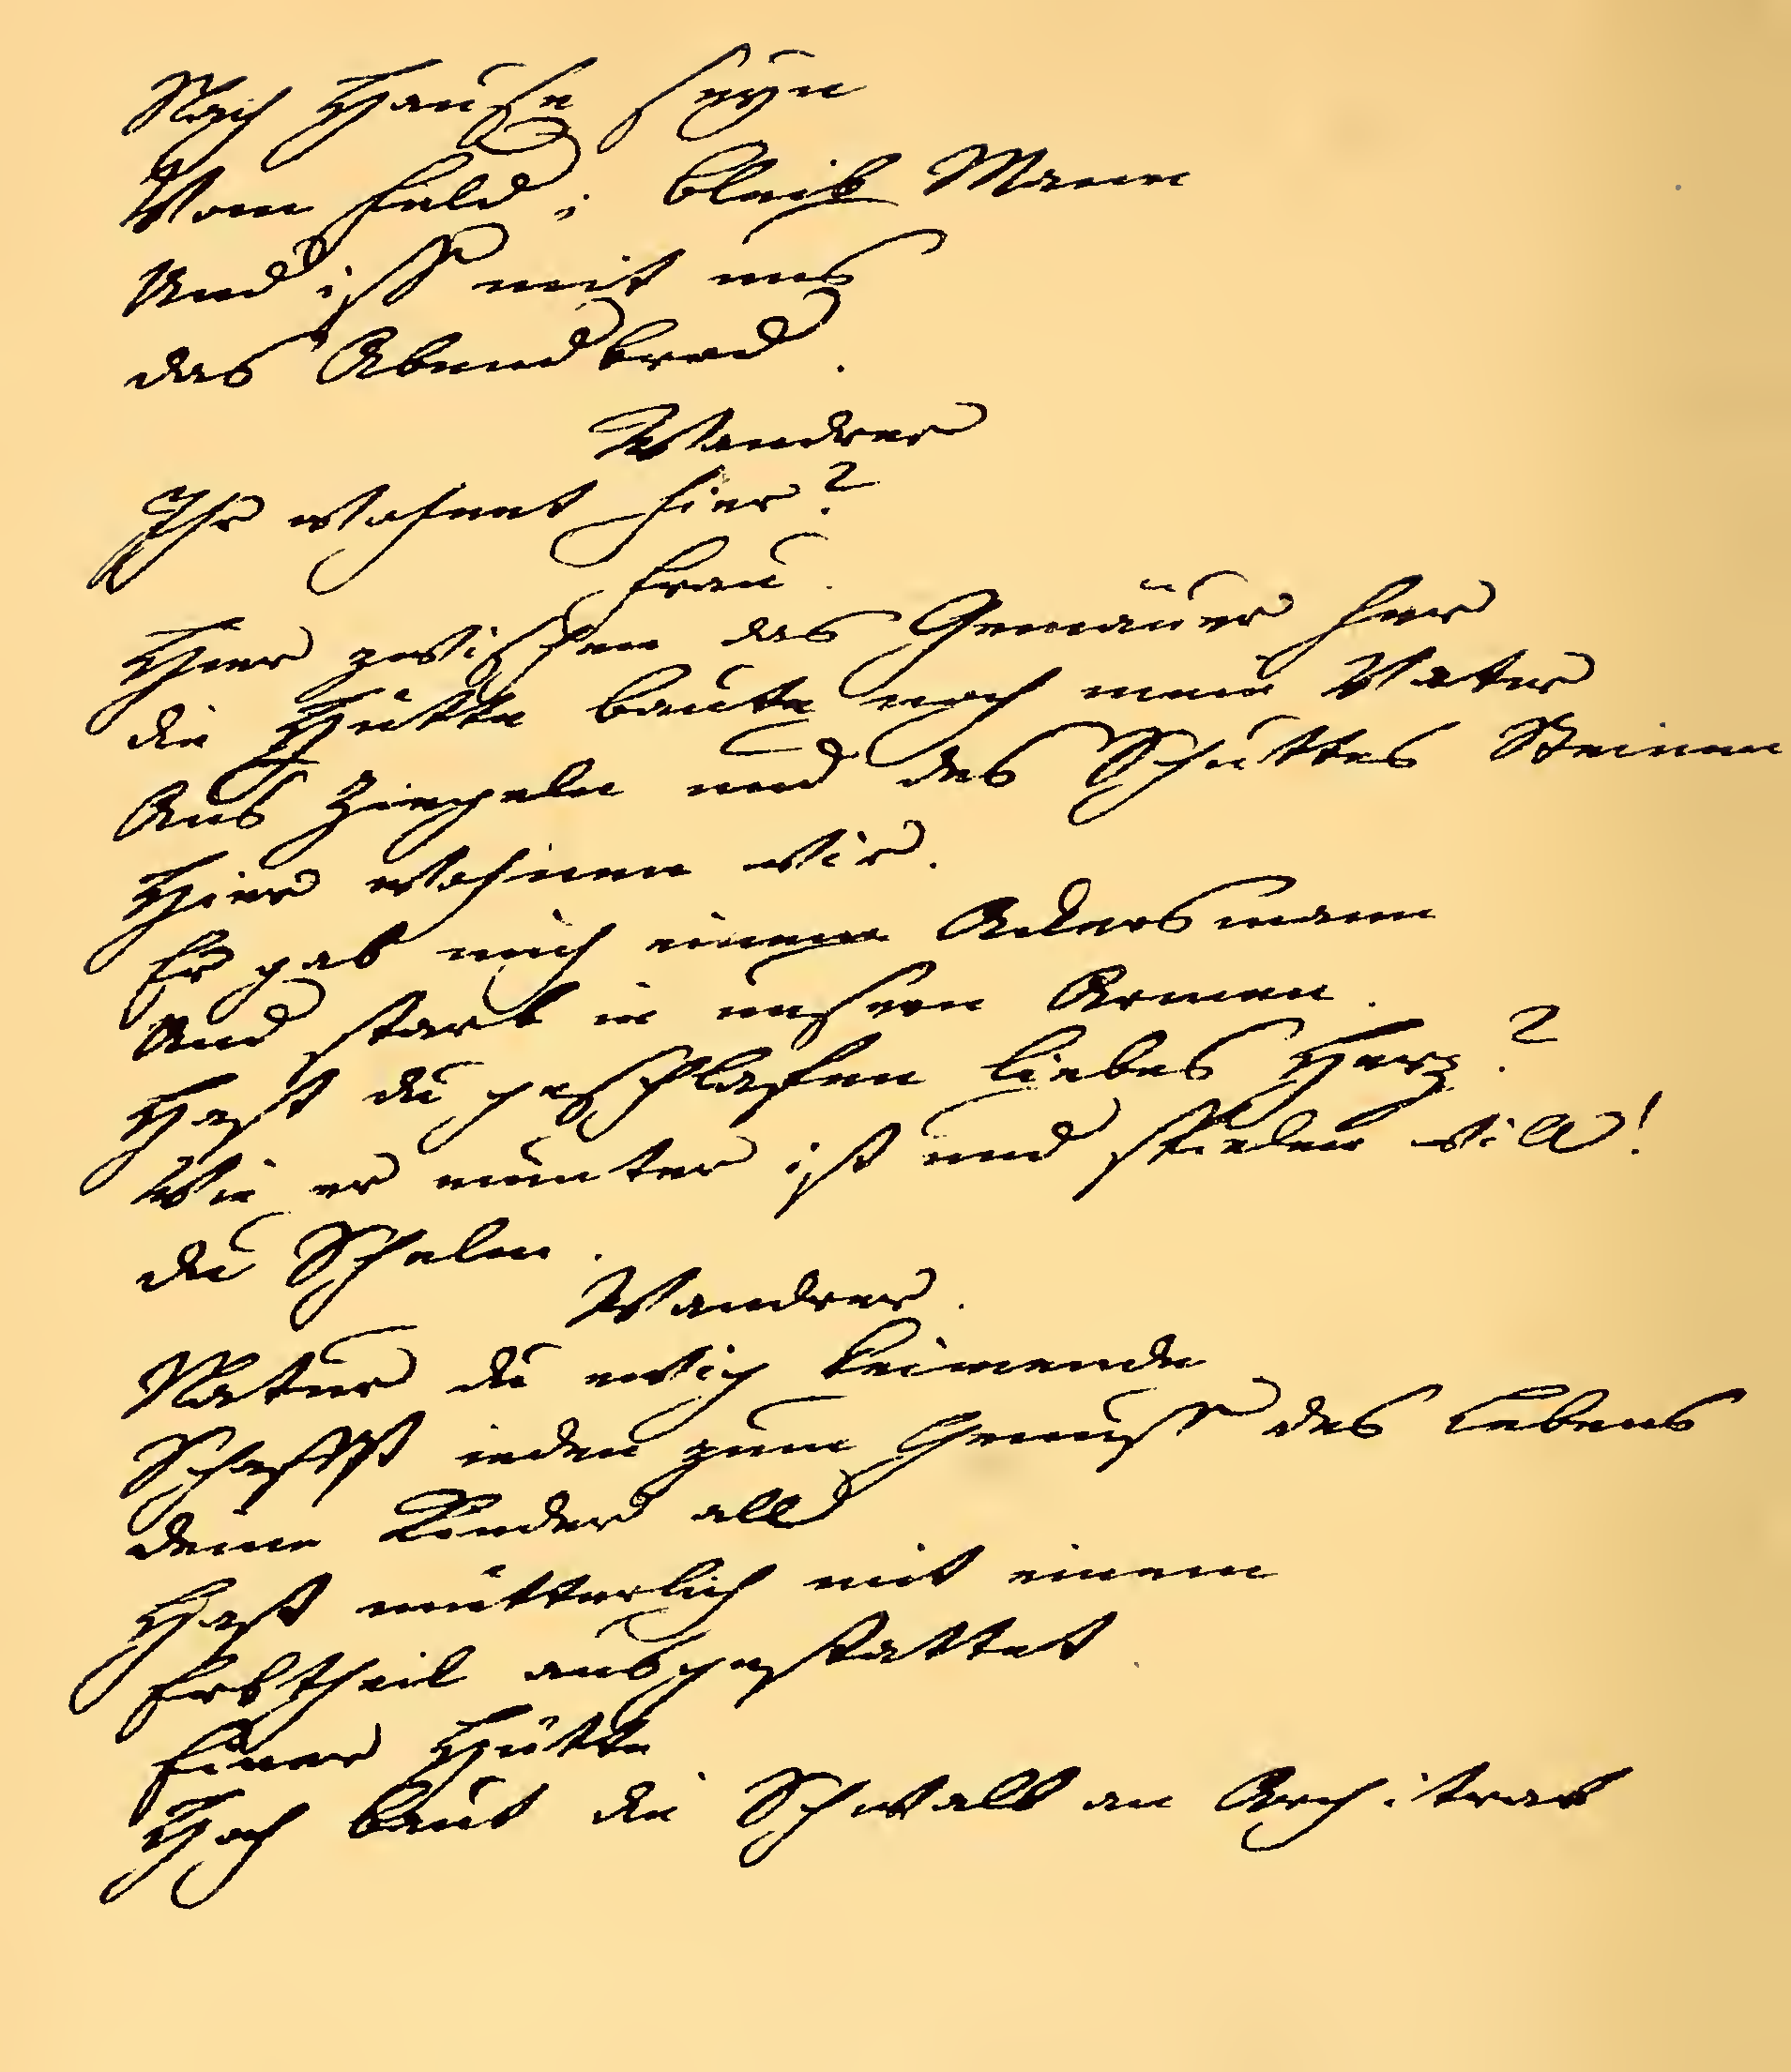 Nach Hause seyn
Vom Feld; bleib Mann
Und iss mit uns
das Abendbrod.
Wandrer
Ihr wohnet hier?
Frau.
Hier zwischen das Gemäuer her
die Hütte baute noch mein Vater
Aus Ziegeln und des Schuttes Steinen
Hier wohnen wir.
Er gab mich einem Ackersmann
Und starb in unsern Armen.
Hast du geschlafen liebes Herz?
Wie er munter ist und spielen will!
du Schelm.
Wandrer.
Natur du ewig keimende
Schaffst ieden zum Genuss des Lebens
deine Kinder all
Hast mütterlich mit einem
Erbtheil ausgestattet
Einer Hütte
Hoch baut die Schwalb an Architrab